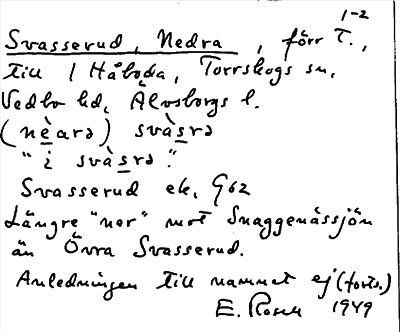 1-2
Svasserud, Nedra, förr T.,
till 1 Håboda, Torrskogs sn,
Vedbo hd, Älvsborgs l.
(nèarə) svàsrə
"i svàsrə".
Svasserud ek. G62
Längre "ner" mot Snaggenässjön
än Övra Svasserud.
Anledningen till namnet ej (forts.)
E. Rosén 1949